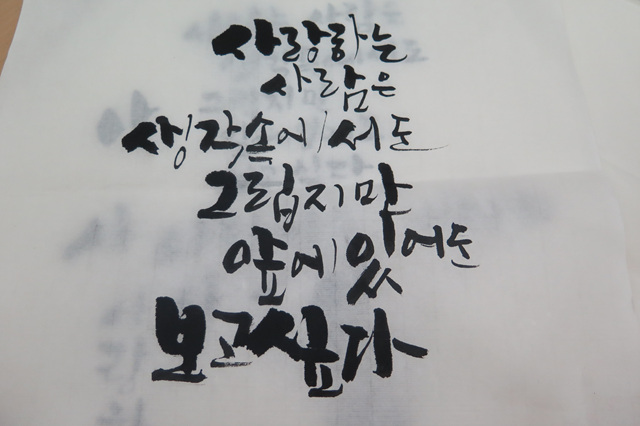 사랑하는
사람은
생각속에서도
그립지만
앞에 있어도
보고싶다